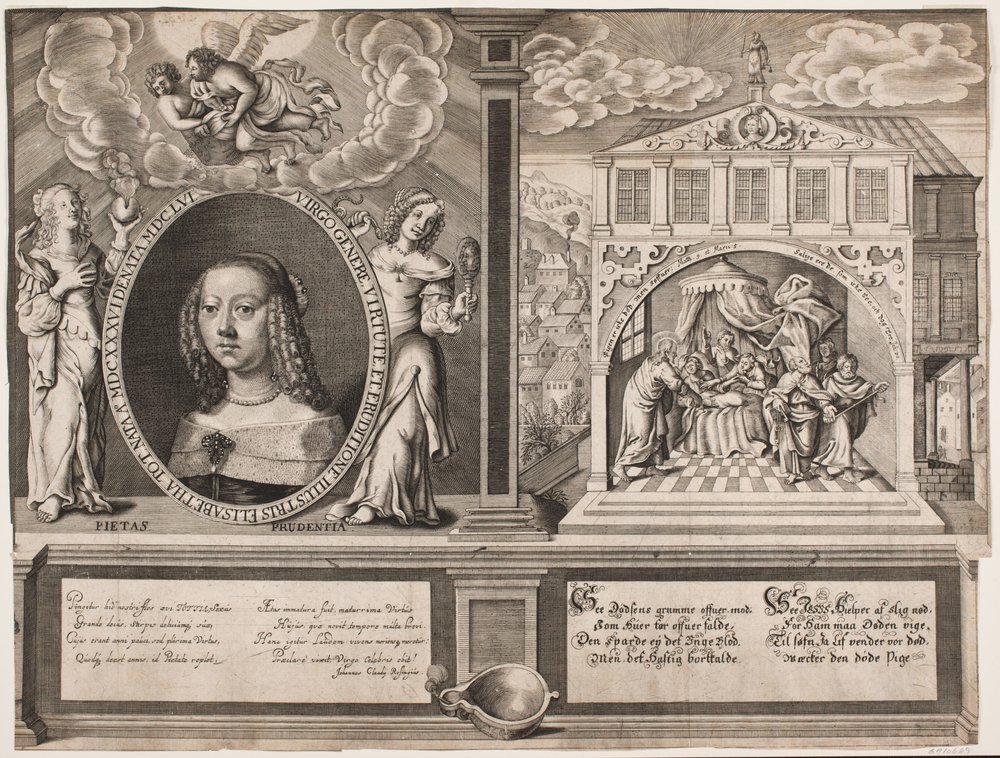 VIRGO GENERE, VIRTUTE ET ERUDITIONE ILLUSTRIS ELISABETHA TOT NATA A MDCXXXVI DENATA MDCLVI
PIETAS
PRUDENTIA
Pigen er icke død, men soffuer. Matt. 9 et Marci 5.
Salige ere de som icke see, och dog
Pingitur hic nostri flos ævi TOTTIA, Sexûs
Grande decus, Stirpis deliciumq₃ suæ;
Cujus erant anni pauci, sed plurima Virtus,
deest annis, id Pietate replet.
Ætas immatura fuit, maturrima Virtus
Hujus, quæ novit tempore multa brevi.
Hanc igitur Laudem vivens moriensq₃ meretur:
Præclarè vixit, Virgo Celebris obit!
Johannes Claudij Rosingius.
See Dødsens grumme offuer mod.
Som Huer tør offuer falde,
Den sparde ey det Unge Blod,
Men det Hastig bortkalde.
See JESVS Hielper af slig nød.
For Ham maa Døden vige,
Til søfn, & Lif vender vor død.
Wæcker den døde Pige